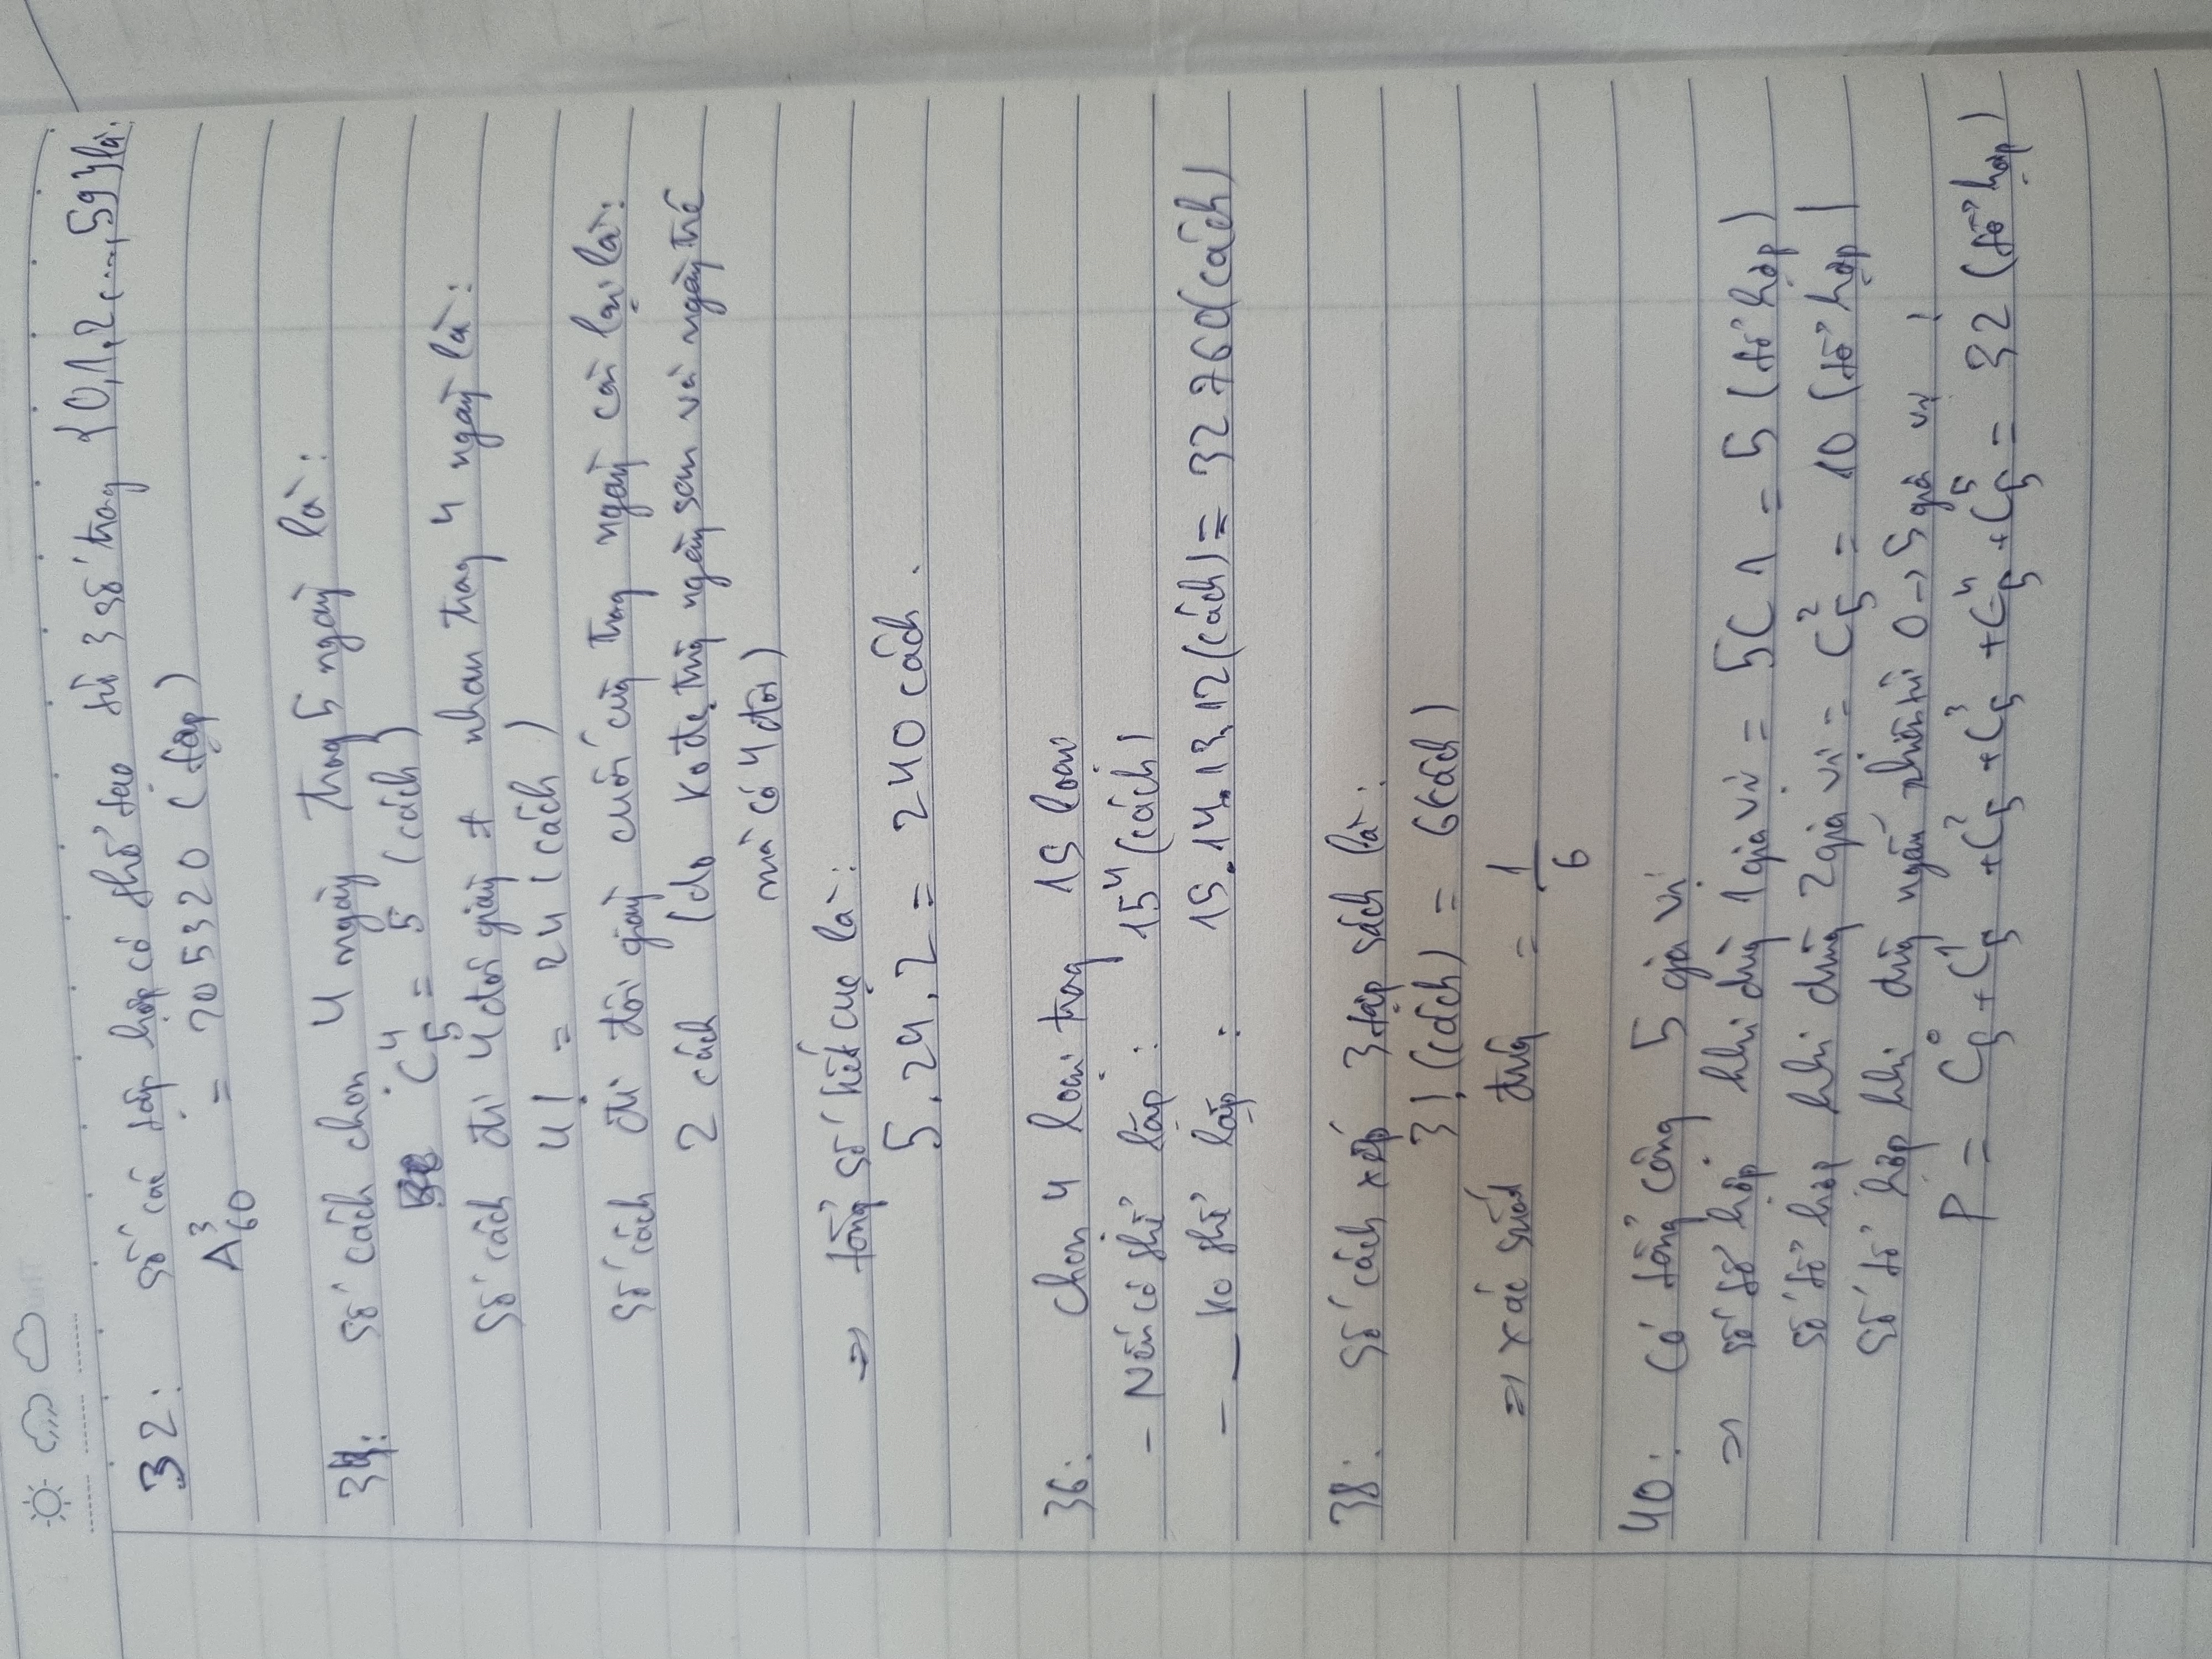 32: Số các tập hợp có thể tạo từ 3 số trog {0,1,2,...,59} là:
A³₆₀ = 205320 (tập)
34: Số cách chọn 4 ngày trog 5 ngày là:
C⁴₅ = 5 (cách)
Số cách đi 4 đôi giày ≠ nhau trog 4 ngày là:
4! = 24 (cách)
Số cách đi đôi giày cuối cùg trog ngày còn lại là:
2 cách (do ko đc trùg ngày sau và ngày trc
mà có 4 đôi)
=> tổng số kết cục là:
5.24.2 = 240 cách.
36: Chọn 4 loại trog 15 loại
- Nếu có thể lặp: 15⁴ (cách)
- _ ko thể lặp: 15.14.13.12 (cách) = 32760 (cách)
38: Số cách xếp 3 tập sách là:
3! (cách) = 6 (cách)
=> xác suất đúg = 1/6
40: Có tổng cộng 5 gia vị
=> số tổ hợp khi dùg 1 gia vị = 5C1 = 5 (tổ hợp)
Số tổ hợp khi dùng 2 gia vị = C²₅ = 10 (tổ hợp)
Số tổ hợp khi dùg ngẫu nhiên từ 0 -> 5 gia vị :
P = C⁰₅ + C¹₅ + C²₅ + C³₅ + C⁴₅ + C⁵₅ = 32 (tổ hợp)